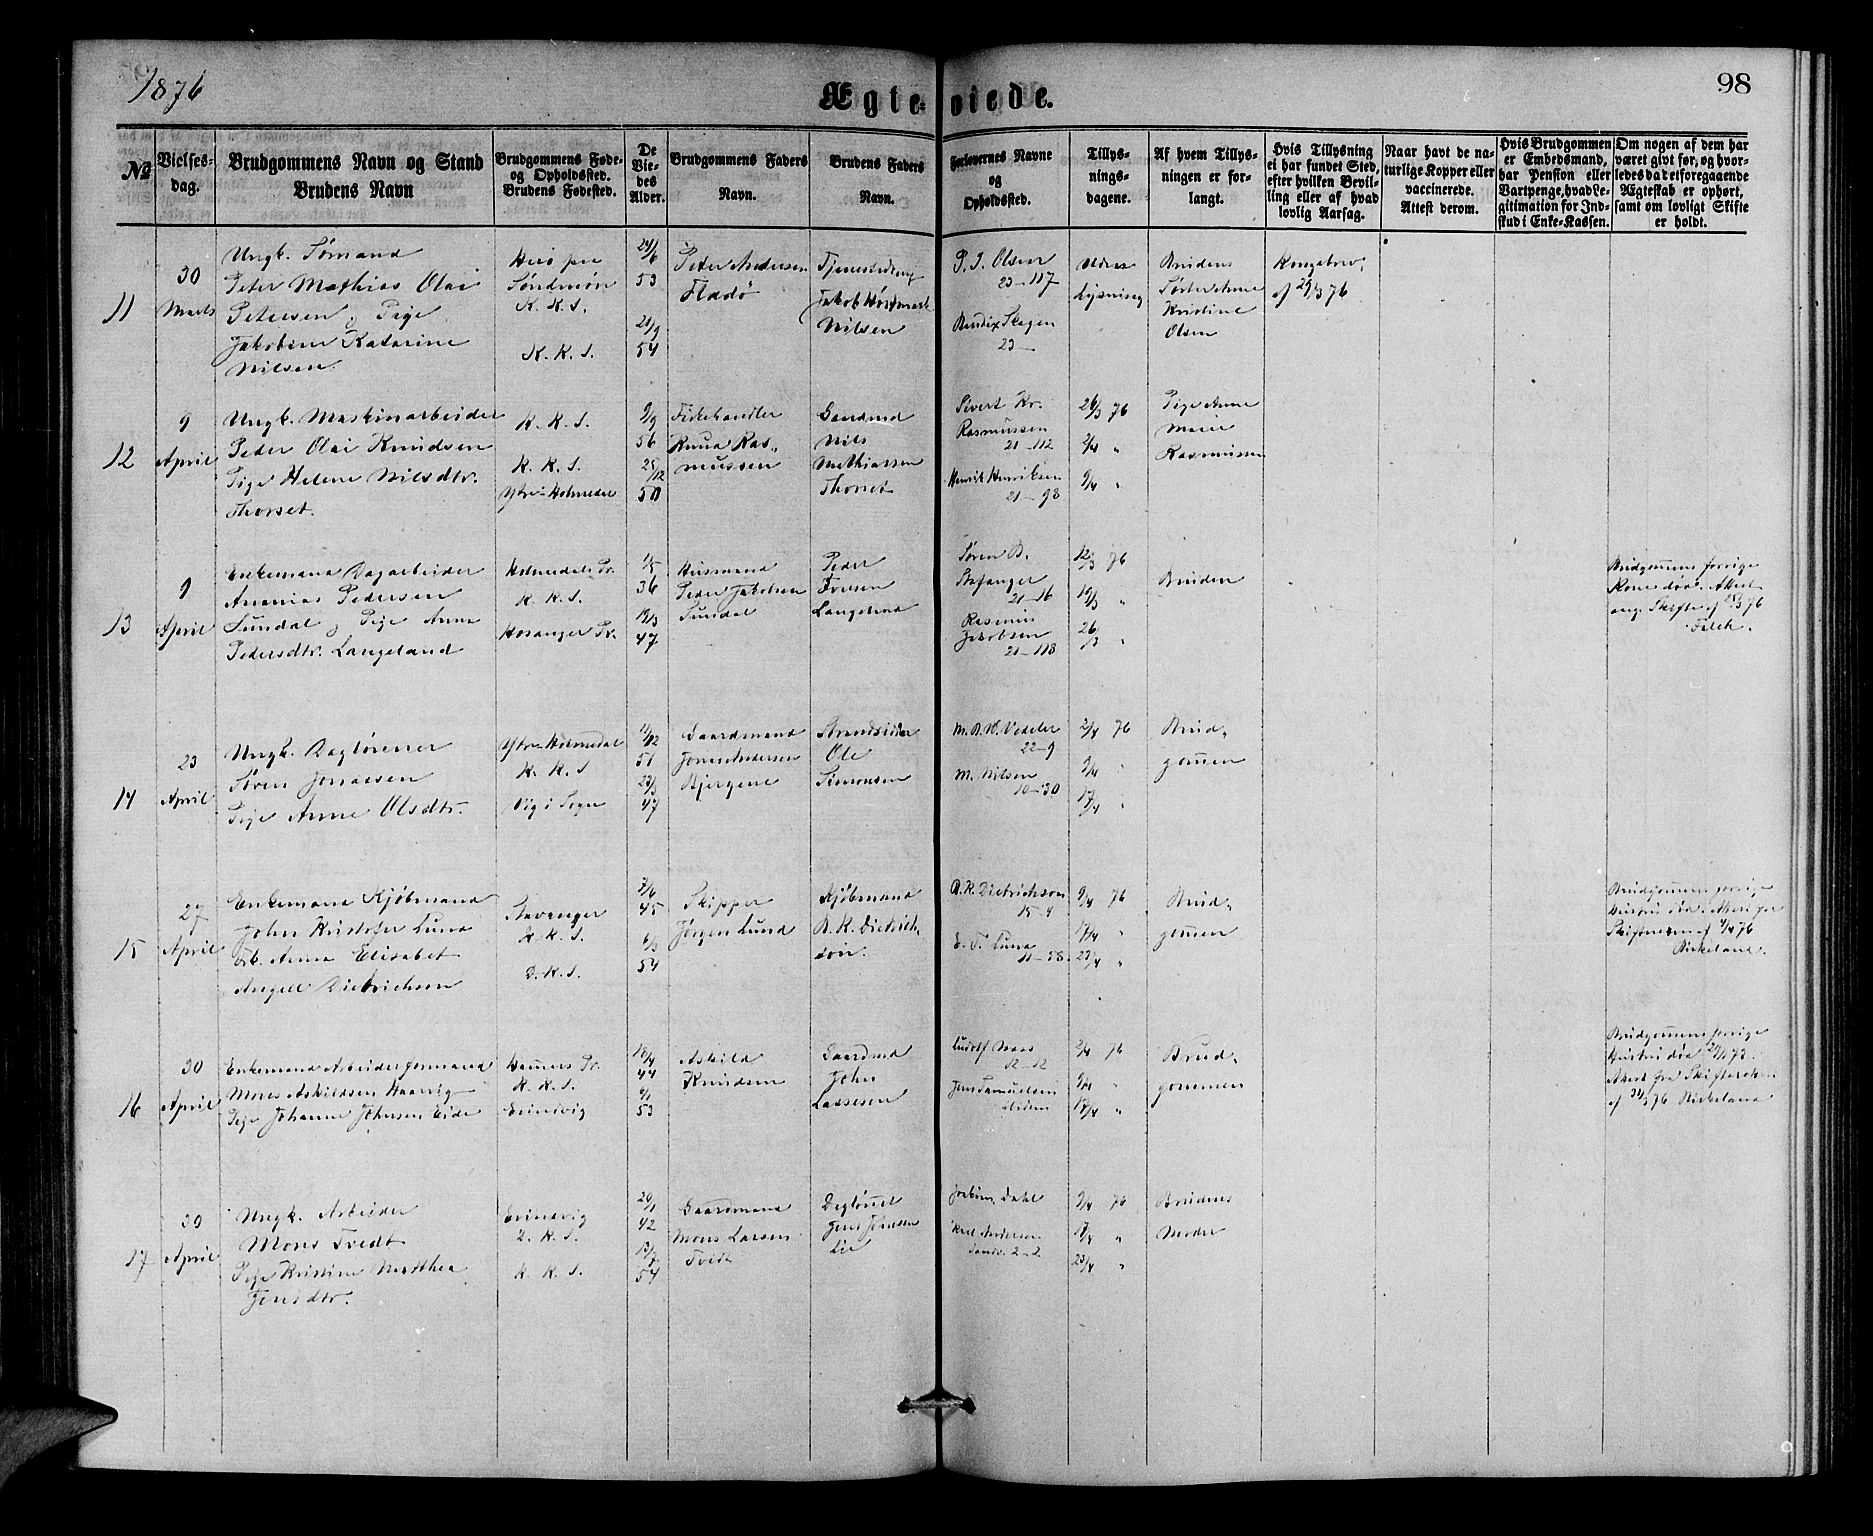 1876
Ægte-viede.
98
No
Vielses-
dag.
Brudgommens Navn og Stand
Brudens Navn
Brudgommens Føde-
og Opholdsted.
Brudens Fødested.
De
Vie-
des
Alder.
Brudgommens Faders
Navn.
Brudens Faders
Navn.
Forlovernes Navne
og
Opholdsted.
Tillys-
nings-
dagene.
Af hvem Tillys-
ningen er for-
langt.
Hvis Tillysning
ei har fundet Sted,
efter hvilken Bevil-
ling eller af hvad
lovlig Aarsag.
Naar havt de na-
turlige Kopper eller
vaccinerede.
Attest derom.
Hvis Brudgommen
er Embedsmand,
har Pension eller
Vartpenge, hvad Le-
gitimation for Ind-
skud i Enke-Kassen.
Om nogen af dem har
været givt før, og hvor-
ledes da det foregaaende
Ægteskab er ophørt,
samt om lovligt Skifte
er holdt.
11
30
Marts
Ungk. Sømand
Peter Mathias Olai
Petersen & Pige
Jakobine Katarine
Nilsen.
Herø pr
Søndmør
K. K. S.
K. K. S.
24/6
53
21/9
54
Peter Andersen
Fladø
Tjenestedreng
Jakob
Nilsen
P. J. Olsen
23-117
Bendix Skagen
23-
Uden
Lysning
Brudens
Søster Anne
Kristine
Olsen
Kongebrev
af 29/3 76
12
9
April
Ungk. Maskinarbeider
Peder Olai Knudsen
Pige Helene Nilsdtr.
Thorset.
K. K. S.
K. K. S.
Ytre-Holmedal
9/9
56
25/12
50
Fiskehandler
Knud Ras-
mussen
Gaardmd
Nils
Mathiassen
Thorset
Sivert Kr.
Rasmussen
21-112
Henrik Henriksen
21-98
26/3 76
2/4 "
9/4 "
Pige Anne
Marie
Rasmussen
13
9
April
Enkemand Dagarbeider
Ananias Pedersen
Sundal & Pige Anna
Pedersdtr. Langeland
Holmedals Pr.
K. K. S.
Hosanger Pr.
1/5
36
19/3
47
Husmand
Peder Jakobsen
Sundal
Peder
Iversen
Langeland
Søren B.
Stafanger
21-16
Rasmus
Jakobsen
21-113
12/3 76
19/3 "
26/3 "
Bruden
Brudgommens forrige
Kone død. Attest
ang. Skifte af 28/3 76
14
23
April
Ungk. Dagløner
Søren Jonassen
Pige Anne Olsdtr.
Ytre-Holmedal
K. K. S
Vig i Sogn
11/12
51
23/3
47
Gaardmand
Jonas Andersen
Bjergene
Strandsidder
Ole
Simonsen
M. B. W. Vedeler
22-9
M. Nilsen
10-30
2/4 76
9/4 "
17/4 "
Brud-
gommen
15
27
April
Enkemand Kjøbmand
John Kristofer Lund
Frk. Anna Elisabet
Angell Dietrichson
Stavanger
K. K. S.
D. K. S.
7/6
45
6/3
54
Skipper
Jørgen Lund
Kjøbmand
B. K. Dietrich-
son.
B. K. Dietrichson
15-4
E. F. Lund
11-38
9/4 76
17/4 "
23/4 "
Brud-
gommen
Brudgommens forrige
Hustru død. Attest fra
Skifteretten af 4/4 76
Birkeland.
16
30
April
Enkemand Arbeidsformand
Mons Askildsen Haarvig
Pige Johanne Johnsen Eide
Hammers Pr.
K. K. S.
Evindvig
18/4
44
6/1
53
Askild
Knudsen
Gaardmd
John
Lassesen
Ludolf Maas
12-12
Jens Samuelsen
ibidem
2/4 76
9/4 "
17/4 "
Brud-
gommen
Brudgommens forrige
Hustru død 29/1 73.
Attest fra Skifteretten
af 31/3 76 Birkeland
17
30
April
Ungk. Arbeider
Mons Tvedt
Pige Kristine Matthea
Jensdtr.
Evindvig
K. K. S.
K. K. S.
20/1
42
13/7
54
Gaardmand
Mons Larsen
Tvedt
Dagløner
Jens Johnsen
Lie
Joakim Dahl
Karl Andersen
Sandv. 2-2
9/4 76
17/4 "
23/4 "
Brudens
Moder